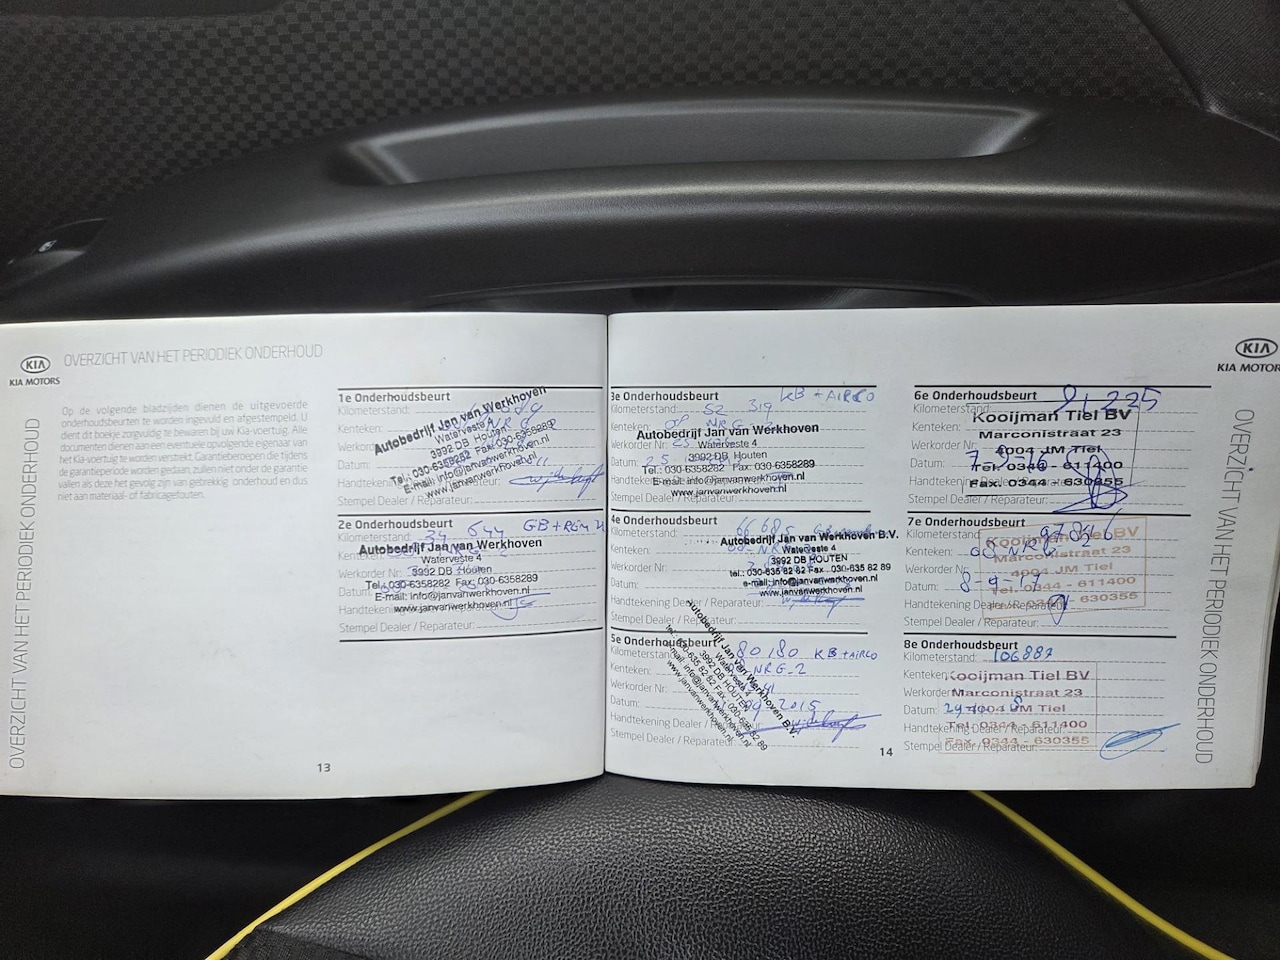 KIA
KIA MOTORS
OVERZICHT VAN HET PERIODIEK ONDERHOUD
OVERZICHT VAN HET PERIODIEK ONDERHOUD
Op de volgende bladzijden dienen de uitgevoerde
onderhoudsbeurten te worden ingevuld en afgestempeld. U
dient dit boekje zorgvuldig te bewaren bij uw Kia-voertuig. Alle
documenten dienen aan een eventuele opvolgende eigenaar van
het Kia-voertuig te worden verstrekt. Garantieberoepen die tijdens
de garantieperiode worden gedaan, zullen niet onder de garantie
vallen als deze het gevolg zijn van gebrekkig onderhoud en dus
niet aan materiaal- of fabricagefouten.
1e Onderhoudsbeurt
Kilometerstand:
Kenteken:
Werkorder Nr:
Datum:
Handtekening
Stempel Dealer / Reparateur:
Autobedrijf Jan van Werkhoven
Waterveste 4
3992 DB Houten
Tel.: 030-6358282 Fax 030-6358289
E-mail: info@janvanwerkhoven.nl
www.janvanwerkhoven.nl
2e Onderhoudsbeurt
Kilometerstand: 34 644 GB+RGM
Kenteken:
Werkorder Nr:
Datum:
Handtekening
Stempel Dealer / Reparateur:
Autobedrijf Jan van Werkhoven
Waterveste 4
3992 DB Houten
Tel.: 030-6358282 Fax 030-6358289
E-mail: info@janvanwerkhoven.nl
www.janvanwerkhoven.nl
13
3e Onderhoudsbeurt KB + AIRCO
Kilometerstand: 52 319
Kenteken: NRG
Werkorder Nr:
Datum:
Handtekening
Stempel Dealer / Reparateur:
Autobedrijf Jan van Werkhoven
Waterveste 4
3992 DB Houten
Tel.: 030-6358282 Fax 030-6358289
E-mail: info@janvanwerkhoven.nl
www.janvanwerkhoven.nl
4e Onderhoudsbeurt
Kilometerstand: 66 685
Kenteken: NRG
Werkorder Nr:
Datum:
Handtekening Dealer / Reparateur:
Stempel Dealer / Reparateur:
Autobedrijf Jan van Werkhoven B.V.
Waterveste 4
3992 DB HOUTEN
tel.: 030-635 82 82 Fax 030-635 82 89
e-mail: info@janvanwerkhoven.nl
www.janvanwerkhoven.nl
5e Onderhoudsbeurt
Kilometerstand: 80180 KB+AIRCO
Kenteken: NRG-2
Werkorder Nr:
Datum: 2015
Handtekening Dealer
Stempel Dealer / Reparateur:
Autobedrijf Jan van Werkhoven B.V.
Waterveste 4
3992 DB HOUTEN
tel.: 030-635 82 82 Fax 030-635 82 89
e-mail: info@janvanwerkhoven.nl
www.janvanwerkhoven.nl
14
6e Onderhoudsbeurt
Kilometerstand: 91225
Kenteken:
Werkorder Nr:
Datum: 7-9-16
Handtekening
Stempel Dealer / Reparateur:
Kooijman Tiel BV
Marconistraat 23
4004 JM Tiel
Tel. 0344 - 611400
Fax. 0344 - 630355
7e Onderhoudsbeurt
Kilometerstand: 97846
Kenteken: NRG
Werkorder Nr:
Datum: 8-9-17
Handtekening Dealer / Reparateur:
Stempel Dealer / Reparateur:
Kooijman Tiel BV
Marconistraat 23
4004 JM Tiel
Tel. 0344 - 611400
Fax. 0344 - 630355
8e Onderhoudsbeurt
Kilometerstand: 106887
Kenteken:
Werkorder
Datum:
Handtekening Dealer / Reparateur:
Stempel Dealer / Reparateur:
Kooijman Tiel BV
Marconistraat 23
4004 JM Tiel
Tel. 0344 - 611400
Fax. 0344 - 630355
KIA
KIA MOTOR
OVERZICHT VAN HET PERIODIEK ONDERHOUD